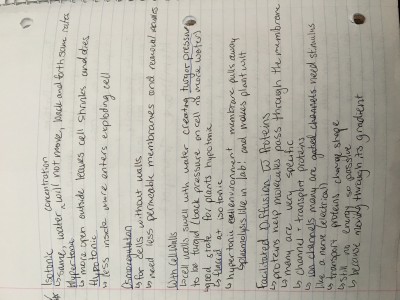 Isotonic concentration
↳ same, water will not move, back and forth same rates
Hypertonic
↳ more seen outside leaves cell shrinks and dies
Hypotonic
↳ less inside more enters exploding cell
Osmoregulation
↳ need cells without walls
↳ need less permeable membranes and removal
With Cell Walls
↳ cell walls swell with water creating turgor pressure
to be turgid (back pressure on cell no more water)
good state for plants hypotonic
↳ flaccid at isotonic
↳ hypertonic environment membrane pulls away
(plasmolysis like in lab! and makes plant wilt
Facilitated Diffusion w Proteins
↳ proteins help molecules pass through the membrane
↳ many are very specific
↳ channel + transport proteins
↳ ion channels many are gated channels need stimulus
like a nerve (electrical)
↳ transport proteins change shape
↳ still no energy so passive
↳ because moving through its gradient